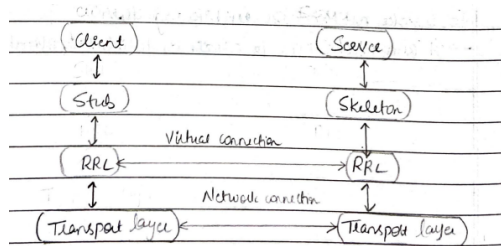 Client Server
Stub Skeleton
Virtual connection
RRL RRL
Network connection
Transport layer Transport layer